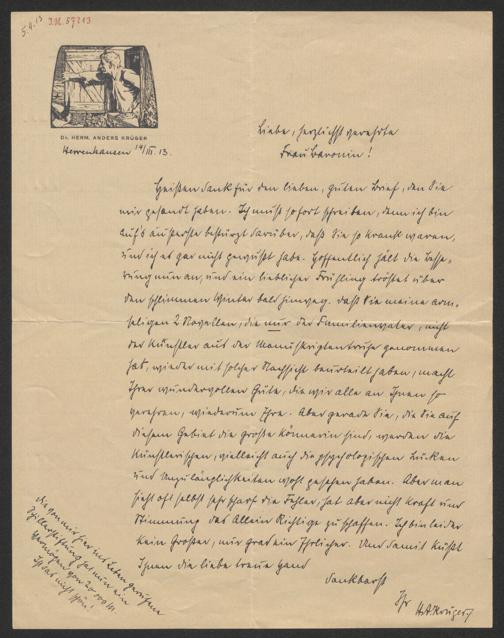 5.4.13 J.N. 57213
Dr. HERM. ANDERS KRÜGER
Herrenhausen 14/III. 13.
Liebe, herzlichst verehrte
Frau Baronin!
Heißen Dank für den lieben, guten Brief, den Sie
mir gesandt haben. Ich muß sofort schreiben, denn ich bin
aufs äußerste bestürzt darüber, daß Sie so krank waren,
und ich es gar nicht gewußt habe. Hoffentlich hält die Besse-
rung nun an, und ein lieblicher Frühling tröstet über
den schlimmen Winter bald hinweg. Daß Sie meine arm-
seligen 2 Novellen, die nur der Familienvater, nicht
der Künstler aus der Manuskriptentruhe genommen
hat, wieder mit solcher Nachsicht beurteilt haben, macht
Ihrer wundervollen Güte, die wir alle an Ihnen so
verehren, wiederum Ehre. Aber gerade Sie, die Sie auf
diesem Gebiet die große Könnerin sind, werden die
künstlerischen, vielleicht auch die psychologischen Lücken
und Unzulänglichkeiten wohl gesehen haben. Aber man
sieht oft selbst sehr scharf die Fehler, hat aber nicht Kraft und
Stimmung das Allein Richtige zu schaffen. Ich bin leider
kein Großer, nur grad ein Ehrlicher. Und damit küßt
Ihnen die liebe treue Hand
dankbarst
Ihr H.A. Krüger
Die von mir hier ins Leben gerufene
Schillerstiftung hat nun ein
Vermögen von 20 000 M.
Ist das nicht schön!